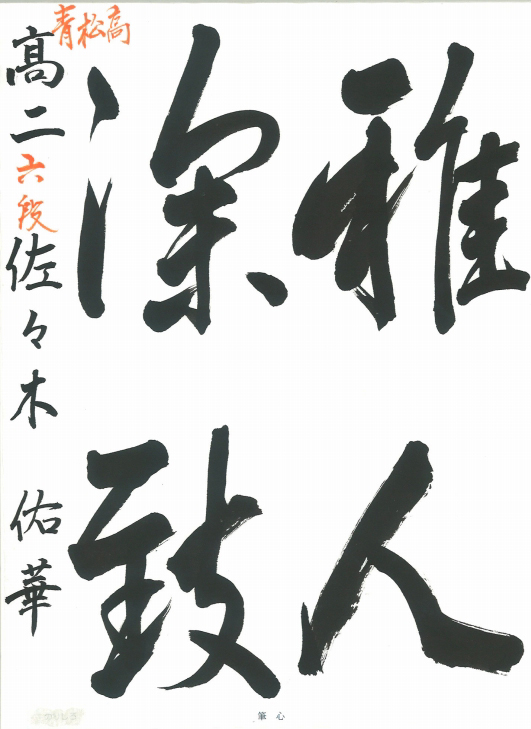 雅人
深致
青松高
高二 六段 佐々木 佑華
心筆